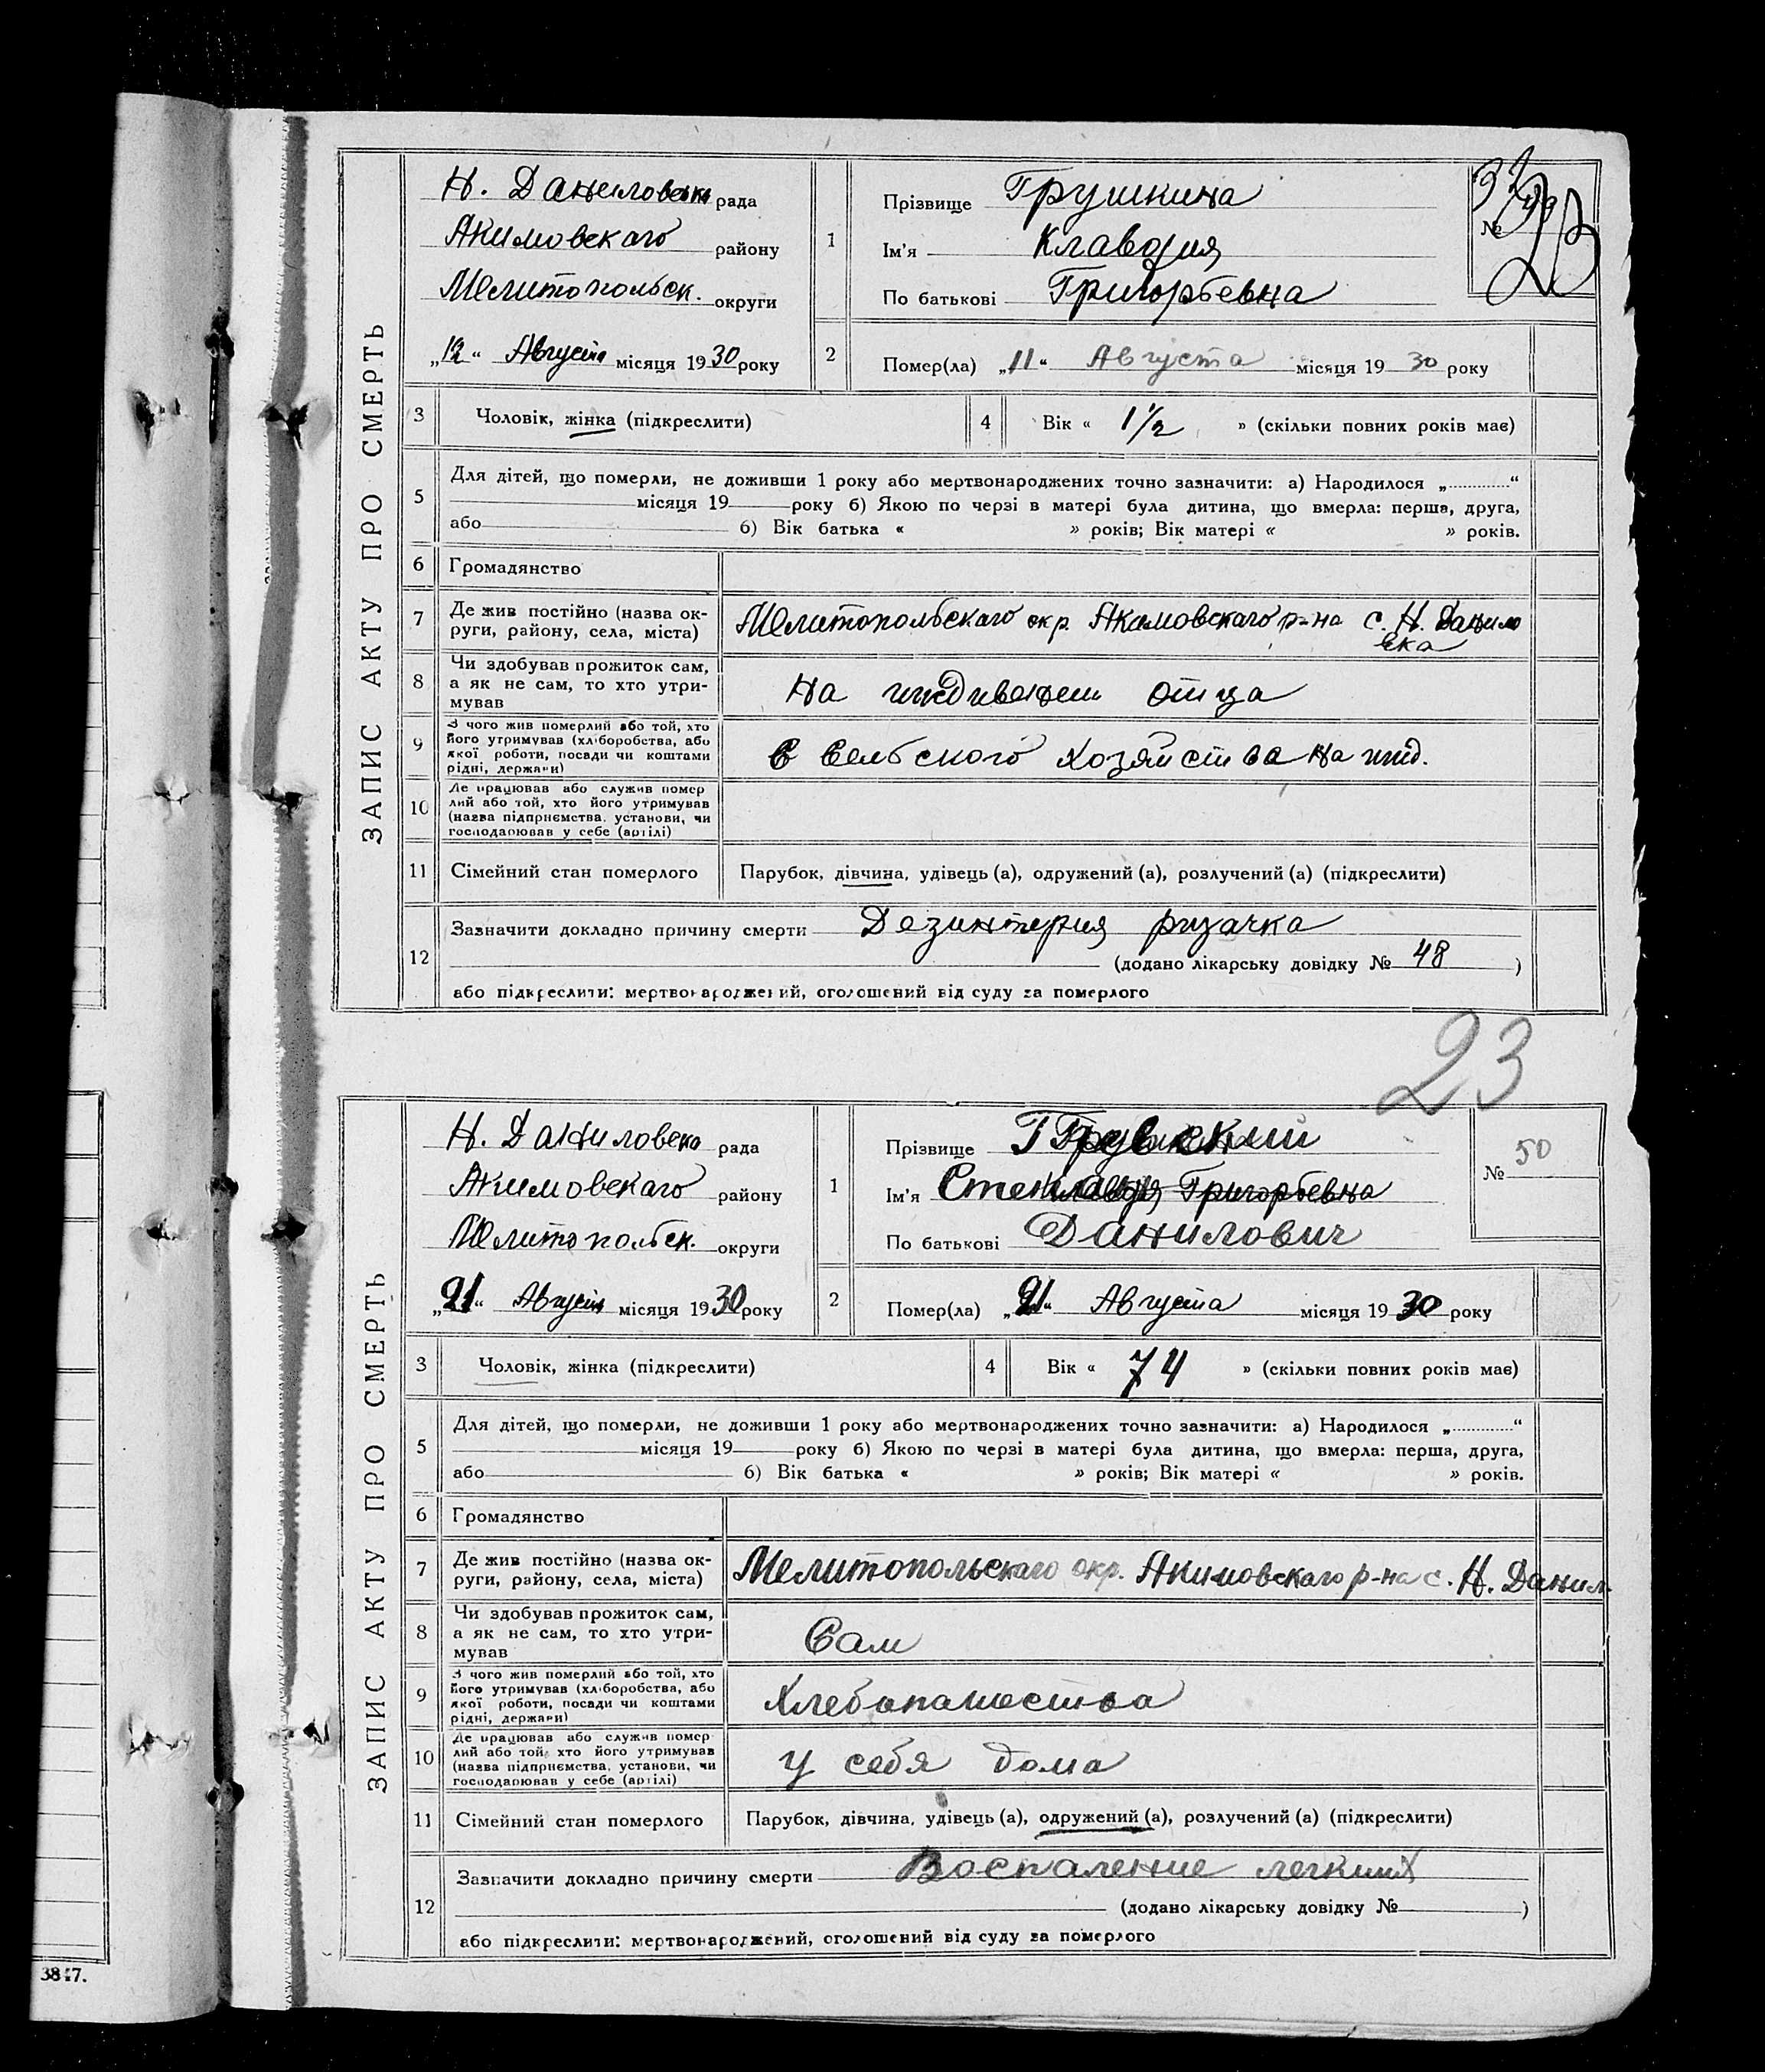 ЗАПИС АКТУ ПРО СМЕРТЬ
Н. Даниловска рада
Акимовскаго району
Мелитопольск. округи
„12“ Августа місяця 1930 року
1
Прізвище Грушкина
Ім'я Клавдия
По батькові Григорьевна
№
2 Помер(ла) „11“ Августа місяця 1930 року
3 Чоловік, жінка (підкреслити)
4 Вік « 1 1/2 » (скільки повних років має)
5 Для дітей, що померли, не доживши 1 року або мертвонароджених точно зазначити: а) Народилося „............“
місяця 19 року б) Якою по черзі в матері була дитина, що вмерла: перша, друга,
або 6) Вік батька « » років; Вік матері « » років.
6 Громадянство
7 Де жив постійно (назва ок-
руги, району, села, міста)
Мелитопольскаго окр. Акимовскаго р-на с. Н. Данило
вка
8 Чи здобував прожиток сам,
а як не сам, то хто утри-
мував
На иждивении отца
9 З чого жив померлий або той, хто
його утримував (хліборобства, або
якої роботи, посади чи коштами
рідні, держави)
С сельского хозяйства на ижд.
10 Де працював або служив помер
лий або той, хто його утримував
(назва підприємства, установи, чи
господарював у себе (артілі)
11 Сімейний стан померлого
Парубок, дівчина, удівець (а), одружений (а), розлучений (а) (підкреслити)
12 Зазначити докладно причину смерти Дезинтерия ризачка
(додано лікарську довідку № 48)
або підкреслити: мертвонароджений, оголошений від суду за померлого
23
ЗАПИС АКТУ ПРО СМЕРТЬ
Н. Даниловска рада
Акимовскаго району
Мелитопольск. округи
„21“ Августа місяця 1930 року
1
Прізвище
Ім'я Григорьевна
По батькові Данилович
№ 50
2 Помер(ла) „21“ Августа місяця 1930 року
3 Чоловік, жінка (підкреслити)
4 Вік « 74 » (скільки повних років має)
5 Для дітей, що померли, не доживши 1 року або мертвонароджених точно зазначити: а) Народилося „............“
місяця 19 року б) Якою по черзі в матері була дитина, що вмерла: перша, друга,
або 6) Вік батька « » років; Вік матері « » років.
6 Громадянство
7 Де жив постійно (назва ок-
руги, району, села, міста)
Мелитопольскаго окр. Акимовскаго р-на с. Н. Данил.
8 Чи здобував прожиток сам,
а як не сам, то хто утри-
мував
Сам
9 З чого жив померлий або той, хто
його утримував (хліборобства, або
якої роботи, посади чи коштами
рідні, держави)
Хлебопашества
10 Де працював або служив помер
лий або той, хто його утримував
(назва підприємства, установи, чи
господарював у себе (артілі)
у себя дома
11 Сімейний стан померлого
Парубок, дівчина, удівець (а), одружений (а), розлучений (а) (підкреслити)
12 Зазначити докладно причину смерти Воспаление легких
(додано лікарську довідку № )
або підкреслити: мертвонароджений, оголошений від суду за померлого
3847.